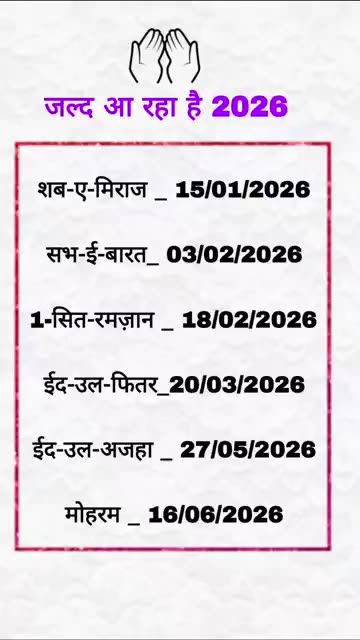 जल्द आ रहा है 2026
शब-ए-मिराज _ 15/01/2026
सभ-ई-बारत_ 03/02/2026
1-सित-रमज़ान _ 18/02/2026
ईद-उल-फितर_20/03/2026
ईद-उल-अजहा _ 27/05/2026
मोहरम _ 16/06/2026